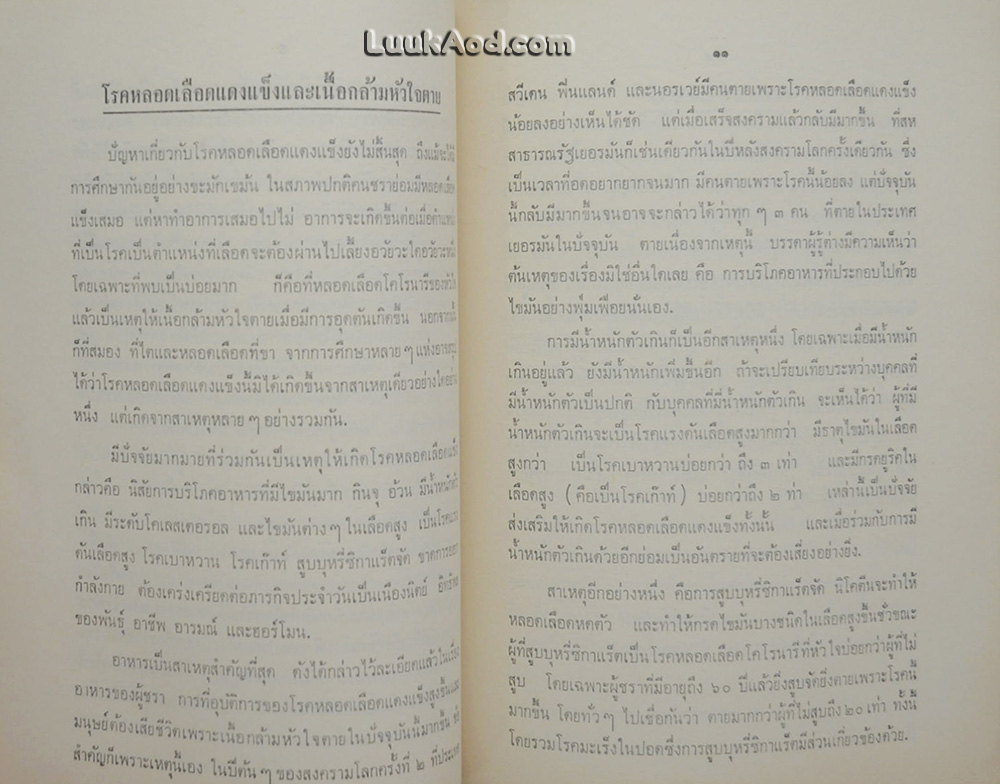 LuukAod.com
โรคหลอดเลือดแดงแข็งและเนื้อกล้ามหัวใจตาย
ปัญหาเกี่ยวกับโรคหลอดเลือดแดงแข็งยังไม่สิ้นสุด ถึงแม้จะได้มี
การศึกษากันอยู่อย่างขะมักเขม้น ในสภาพปกติคนชราย่อมมีหลอดเลือด
แข็งเสมอ แต่หาทำอาการเสมอไปไม่ อาการจะเกิดขึ้นต่อเมื่อตำแหน่ง
ที่เป็นโรคเป็นตำแหน่งที่เลือดจะต้องผ่านไปเลี้ยงอวัยวะใดอวัยวะหนึ่ง
โดยเฉพาะที่พบเป็นบ่อยมาก ก็คือที่หลอดเลือดโคโรนารีของหัวใจ
แล้วเป็นเหตุให้เนื้อกล้ามหัวใจตายเมื่อมีการอุดตันเกิดขึ้น นอกจากนี้
ก็ที่สมอง ที่ไตและหลอดเลือดที่ขา จากการศึกษาหลายๆแห่งอาจสรุป
ได้ว่าโรคหลอดเลือดแดงแข็งนี้มิได้เกิดขึ้นจากสาเหตุเดียวอย่างใดอย่าง
หนึ่ง แต่เกิดจากสาเหตุหลายๆอย่างรวมกัน.
มีปัจจัยมากมายที่ร่วมกันเป็นเหตุให้เกิดโรคหลอดเลือดแดงแข็ง
กล่าวคือ นิสัยการบริโภคอาหารที่มีไขมันมาก กินจุ อ้วน มีน้ำหนักตัว
เกิน มีระดับโคเลสเตอรอล และไขมันต่างๆในเลือดสูง เป็นโรคแรง
ดันเลือดสูง โรคเบาหวาน โรคเก๊าท์ สูบบุหรี่ซิกาแร็ตจัด ขาดการออก
กำลังกาย ต้องเคร่งเครียดต่อภารกิจประจำวันเป็นเนืองนิตย์ อิทธิพล
ของพันธุ์ อาชีพ อารมณ์ และฮอร์โมน.
อาหารเป็นสาเหตุสำคัญที่สุด ดังได้กล่าวไว้ละเอียดแล้วในเรื่อง
อาหารของผู้ชรา การที่อุบัติการของโรคหลอดเลือดแดงแข็งสูงขึ้นและ
มนุษย์ต้องเสียชีวิตเพราะเนื้อกล้ามหัวใจตายในปัจจุบันนี้มากขึ้น
สำคัญก็เพราะเหตุนี้เอง ในปีต้นๆของสงครามโลกครั้งที่ ๒ ที่ประเทศ
๑๑
สวีเดน ฟินแลนด์ และนอรเวย์มีคนตายเพราะโรคหลอดเลือดแดงแข็ง
น้อยลงอย่างเห็นได้ชัด แต่เมื่อเสร็จสงครามแล้วกลับมีมากขึ้น ที่สห
สาธารณรัฐเยอรมันก็เช่นเดียวกันในปีหลังสงครามโลกครั้งเดียวกัน ซึ่ง
เป็นเวลาที่อดอยากยากจนมาก มีคนตายเพราะโรคนี้น้อยลง แต่ปัจจุบัน
นี้กลับมีมากขึ้นจนอาจจะกล่าวได้ว่าทุก ๆ ๓ คน ที่ตายในประเทศ
เยอรมันในปัจจุบัน ตายเนื่องจากเหตุนี้ บรรดาผู้รู้ต่างมีความเห็นว่า
ต้นเหตุของเรื่องมิใช่อื่นใดเลย คือ การบริโภคอาหารที่ประกอบไปด้วย
ไขมันอย่างฟุ่มเฟือยนั่นเอง.
การมีน้ำหนักตัวเกินก็เป็นอีกสาเหตุหนึ่ง โดยเฉพาะเมื่อมีน้ำหนัก
เกินอยู่แล้ว ยังมีน้ำหนักเพิ่มขึ้นอีก ถ้าจะเปรียบเทียบระหว่างบุคคลที่
มีน้ำหนักตัวเป็นปกติ กับบุคคลที่มีน้ำหนักตัวเกิน จะเห็นได้ว่า ผู้ที่มี
น้ำหนักตัวเกินจะเป็นโรคแรงดันเลือดสูงมากกว่า มีธาตุไขมันในเลือด
สูงกว่า เป็นโรคเบาหวานบ่อยกว่า ถึง ๓ เท่า และมีกรดยูริคใน
เลือดสูง (คือเป็นโรคเก๊าท์) บ่อยกว่าถึง ๒ ท่า เหล่านี้เป็นปัจจัย
ส่งเสริมให้เกิดโรคหลอดเลือดแดงแข็งทั้งนั้น และเมื่อร่วมกับการมี
น้ำหนักตัวเกินด้วยอีกย่อมเป็นอันตรายที่จะต้องเสี่ยงอย่างยิ่ง.
สาเหตุอีกอย่างหนึ่ง คือการสูบบุหรี่ซิกาแร็ตจัด นิโคตินจะทำให้
หลอดเลือดหดตัว และทำให้กรดไขมันบางชนิดในเลือดสูงขึ้นชั่วขณะ
ผู้ที่สูบบุหรี่ซิกาแร็ตเป็นโรคหลอดเลือดโคโรนารีที่หัวใจบ่อยกว่าผู้ที่ไม่
สูบ โดยเฉพาะผู้ชราที่มีอายุถึง ๖๐ ปีแล้วยิ่งสูบจัดยิ่งตายเพราะโรคนี้
มากขึ้น โดยทั่วๆ ไปเชื่อกันว่า ตายมากกว่าผู้ที่ไม่สูบถึง๒๐เท่า ทั้งนี้
โดยรวมโรคมะเร็งในปอดซึ่งการสูบบุหรี่ซิกาแร็ตมีส่วนเกี่ยวข้องด้วย.